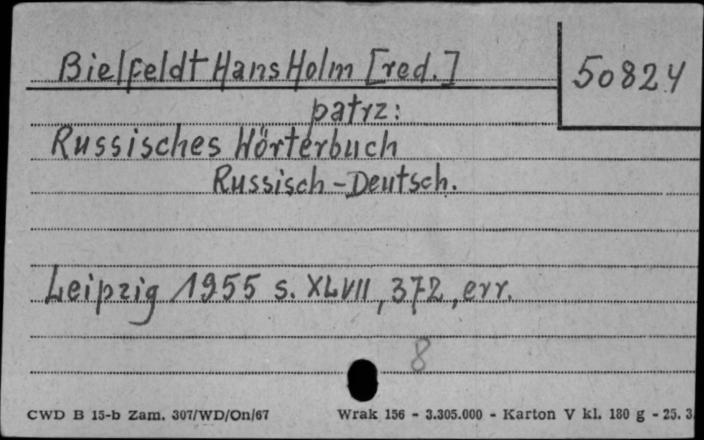 Bielfeldt Hans Holm [red.]
50824
patrz:
Russisches Wörterbuch
Russisch-Deutsch.
Leipzig 1955 s. XLVII, 372, err.
8
CWD B 15-b Zam. 307/WD/On/67 Wrak 156 - 3.305.000 - Karton V kl. 180 g - 25. 3